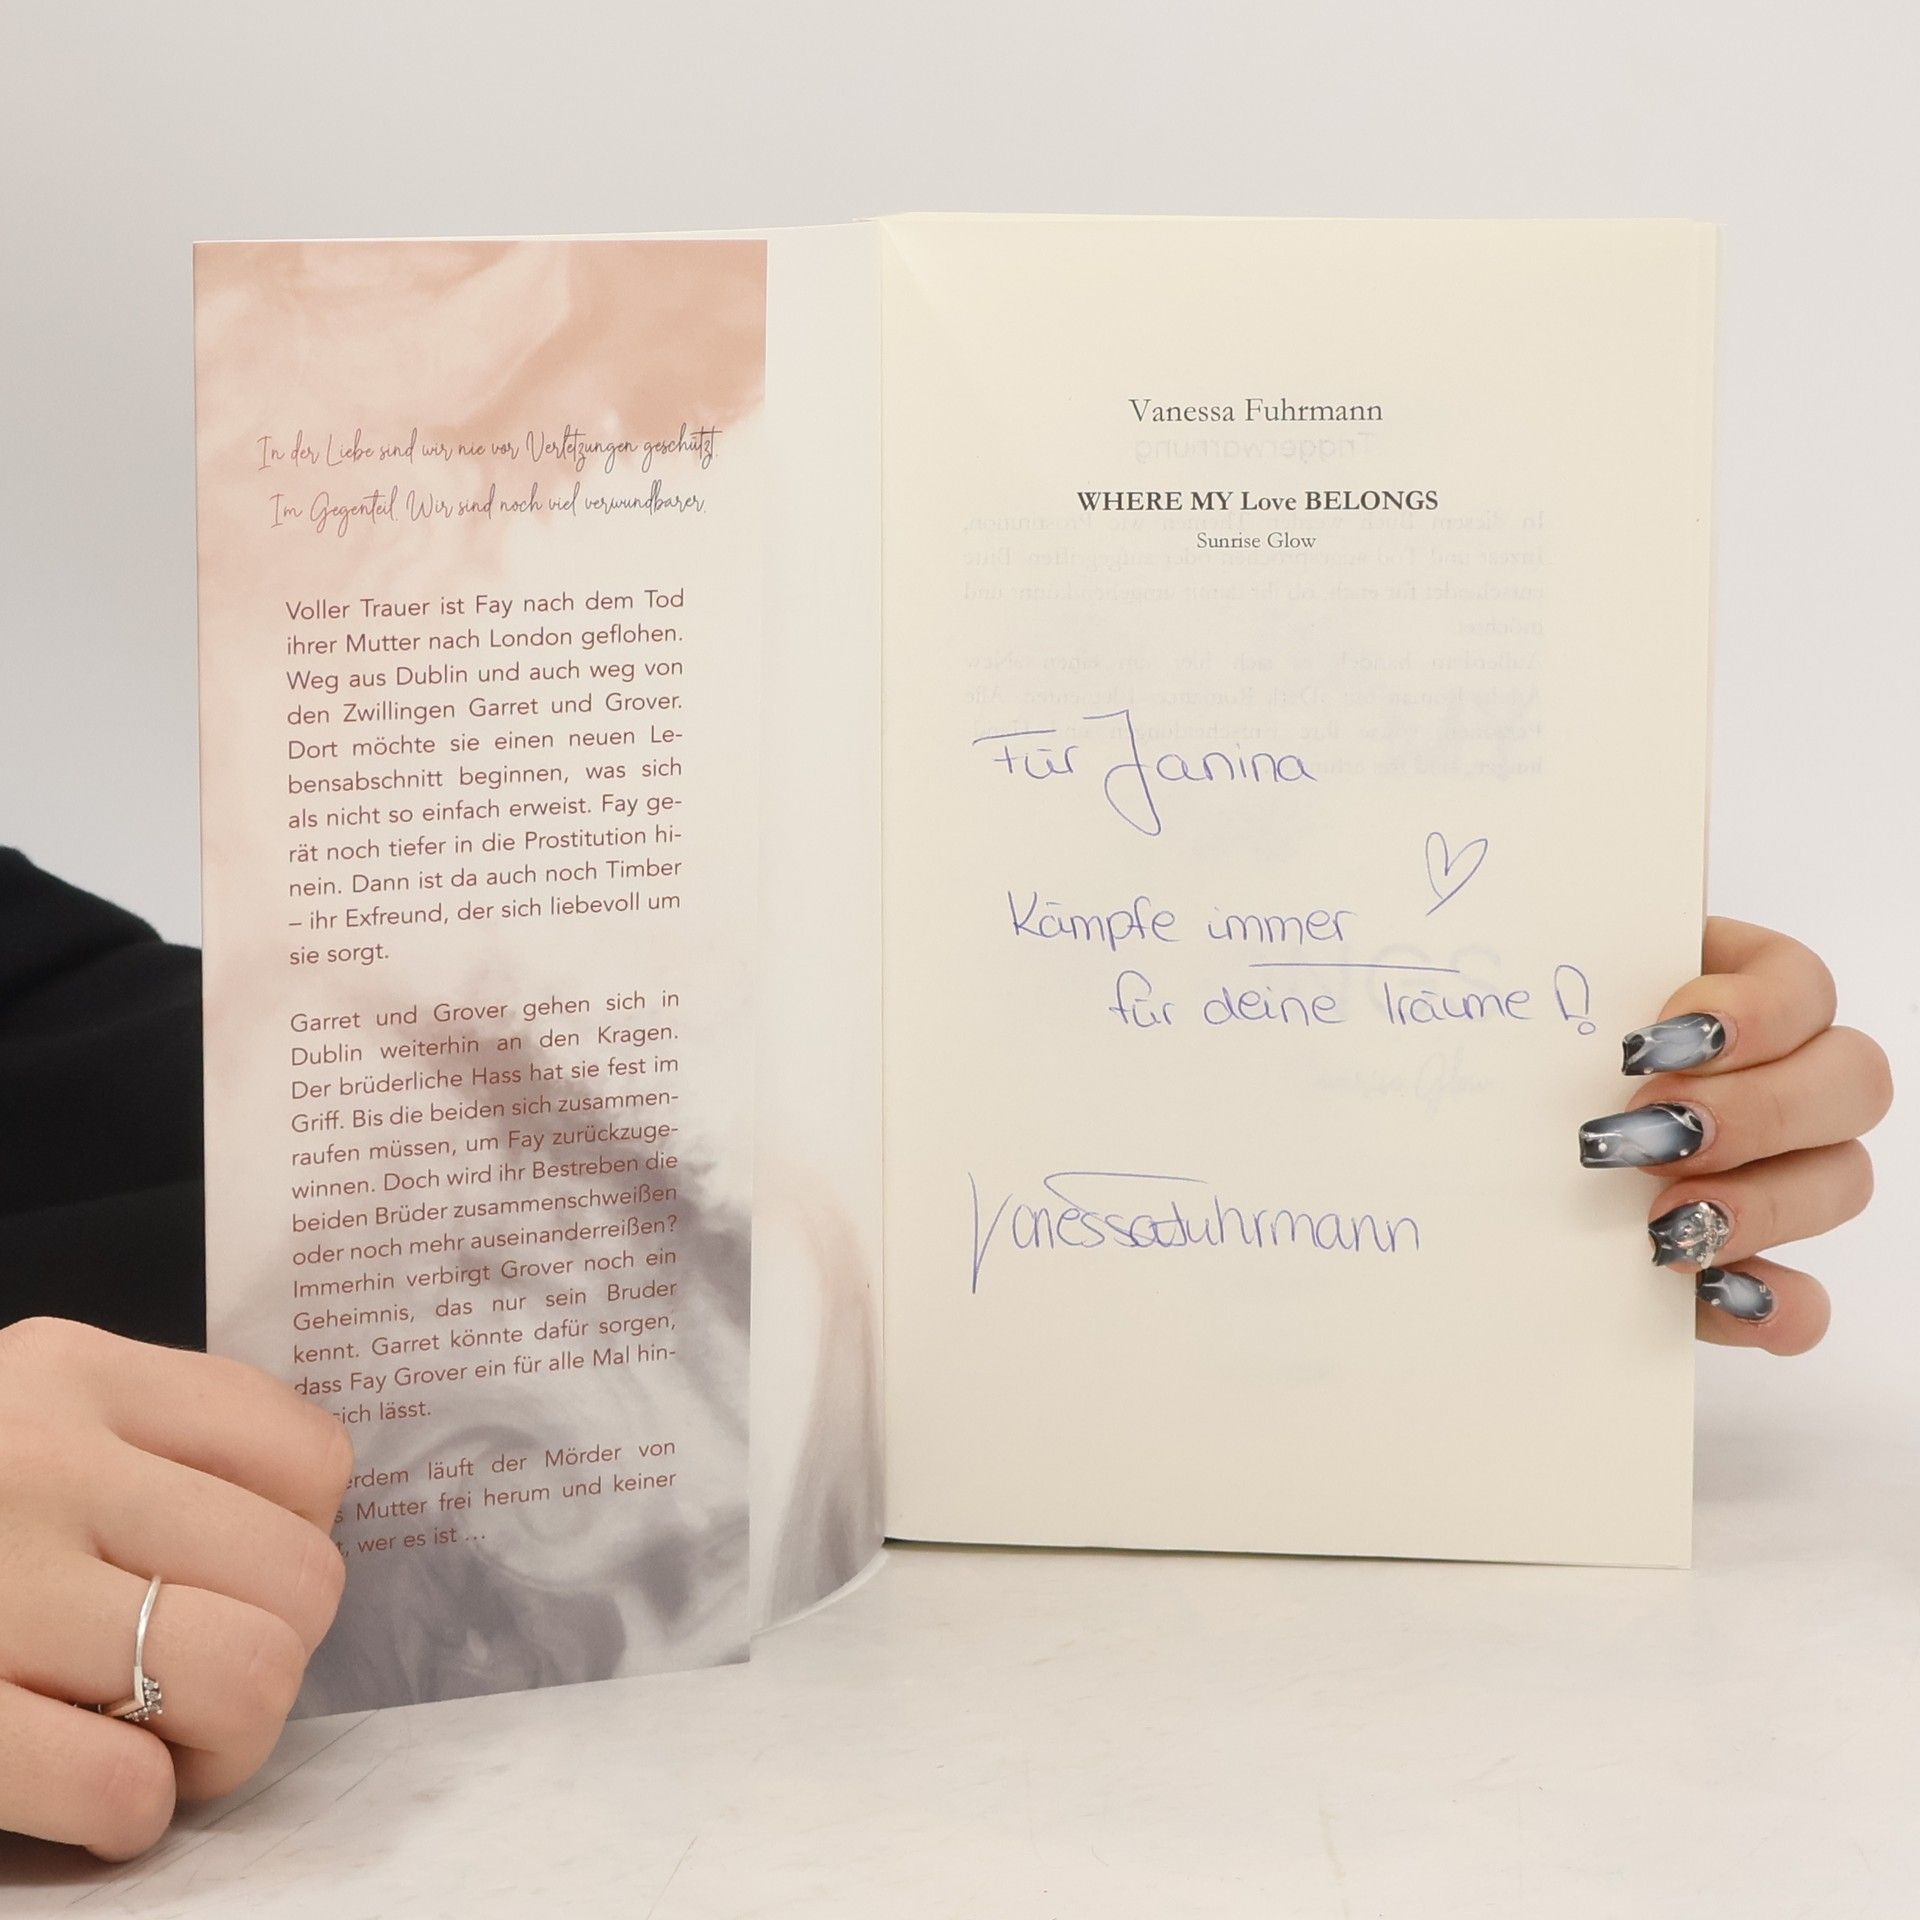 In der Liebe sind wir nie vor Verletzungen geschützt.
Im Gegenteil. Wir sind noch viel verwundbarer.
Voller Trauer ist Fay nach dem Tod
ihrer Mutter nach London geflohen.
Weg aus Dublin und auch weg von
den Zwillingen Garret und Grover.
Dort möchte sie einen neuen Le-
bensabschnitt beginnen, was sich
als nicht so einfach erweist. Fay ge-
rät noch tiefer in die Prostitution hi-
nein. Dann ist da auch noch Timber
– ihr Exfreund, der sich liebevoll um
sie sorgt.
Garret und Grover gehen sich in
Dublin weiterhin an den Kragen.
Der brüderliche Hass hat sie fest im
Griff. Bis die beiden sich zusammen-
raufen müssen, um Fay zurückzuge-
winnen. Doch wird ihr Bestreben die
beiden Brüder zusammenschweißen
oder noch mehr auseinanderreißen?
Immerhin verbirgt Grover noch ein
Geheimnis, das nur sein Bruder
kennt. Garret könnte dafür sorgen,
dass Fay Grover ein für alle Mal hin-
sich lässt.
erdem läuft der Mörder von
s Mutter frei herum und keiner
t, wer es ist ...
Vanessa Fuhrmann
WHERE MY Love BELONGS
Sunrise Glow
Für Janina
Kämpfe immer
für deine Träume!
Vanessa Fuhrmann